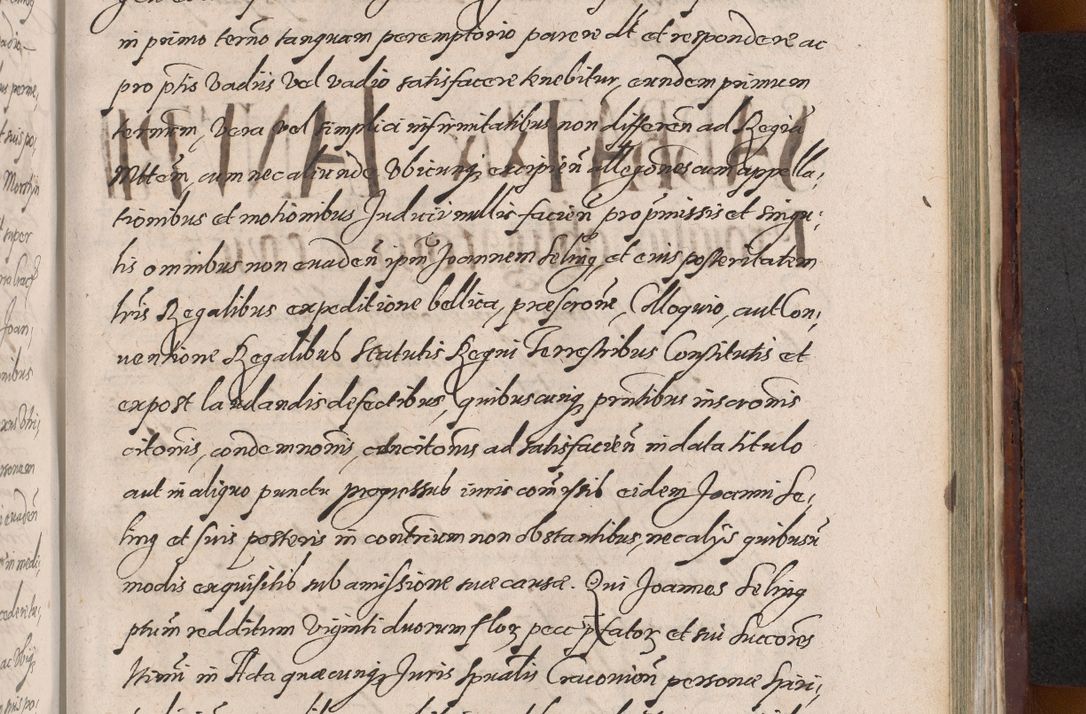 in primo termo tanquam peremptorio parere dt et respondere ac
pro ptis Vadiis Vel vadio satisfacere tenebitur, eundem primum
termum, Vera vel simplici infirmitatibus non differen ad Regiā
Mttem, cum nec aliunde Vbicunq excipien allegones cum appella,
tionibus et motionibus Judicii nullis facien pro pmissis et singu,
lis omnibus non evaden ipm Joannem Seling et eius posteritatem
lris Regalibus expeditione bellica, præscrone, Colloquio, aut Con,
ventione Regalibus Statutis Regni Terrestribus Constitutis et
expost laudandis defectibus, quibuscunq prntibus inscronis
citonis, condemnonis, ad satisfacien in data titulo
aut in aliquo punctu progressus iuris comissis eidem Joanni Se,
ling et suis posteris in contrium non obstantibus, nec alijs quibusu
modis exquisitis sub amissione suæ causæ. Qui Joannes Seling
ptum redditum Viginti duorum flor pecc ptator et sui Succores
in Acta quæcunq Juris Spualis Cracouien personæ Spiri,